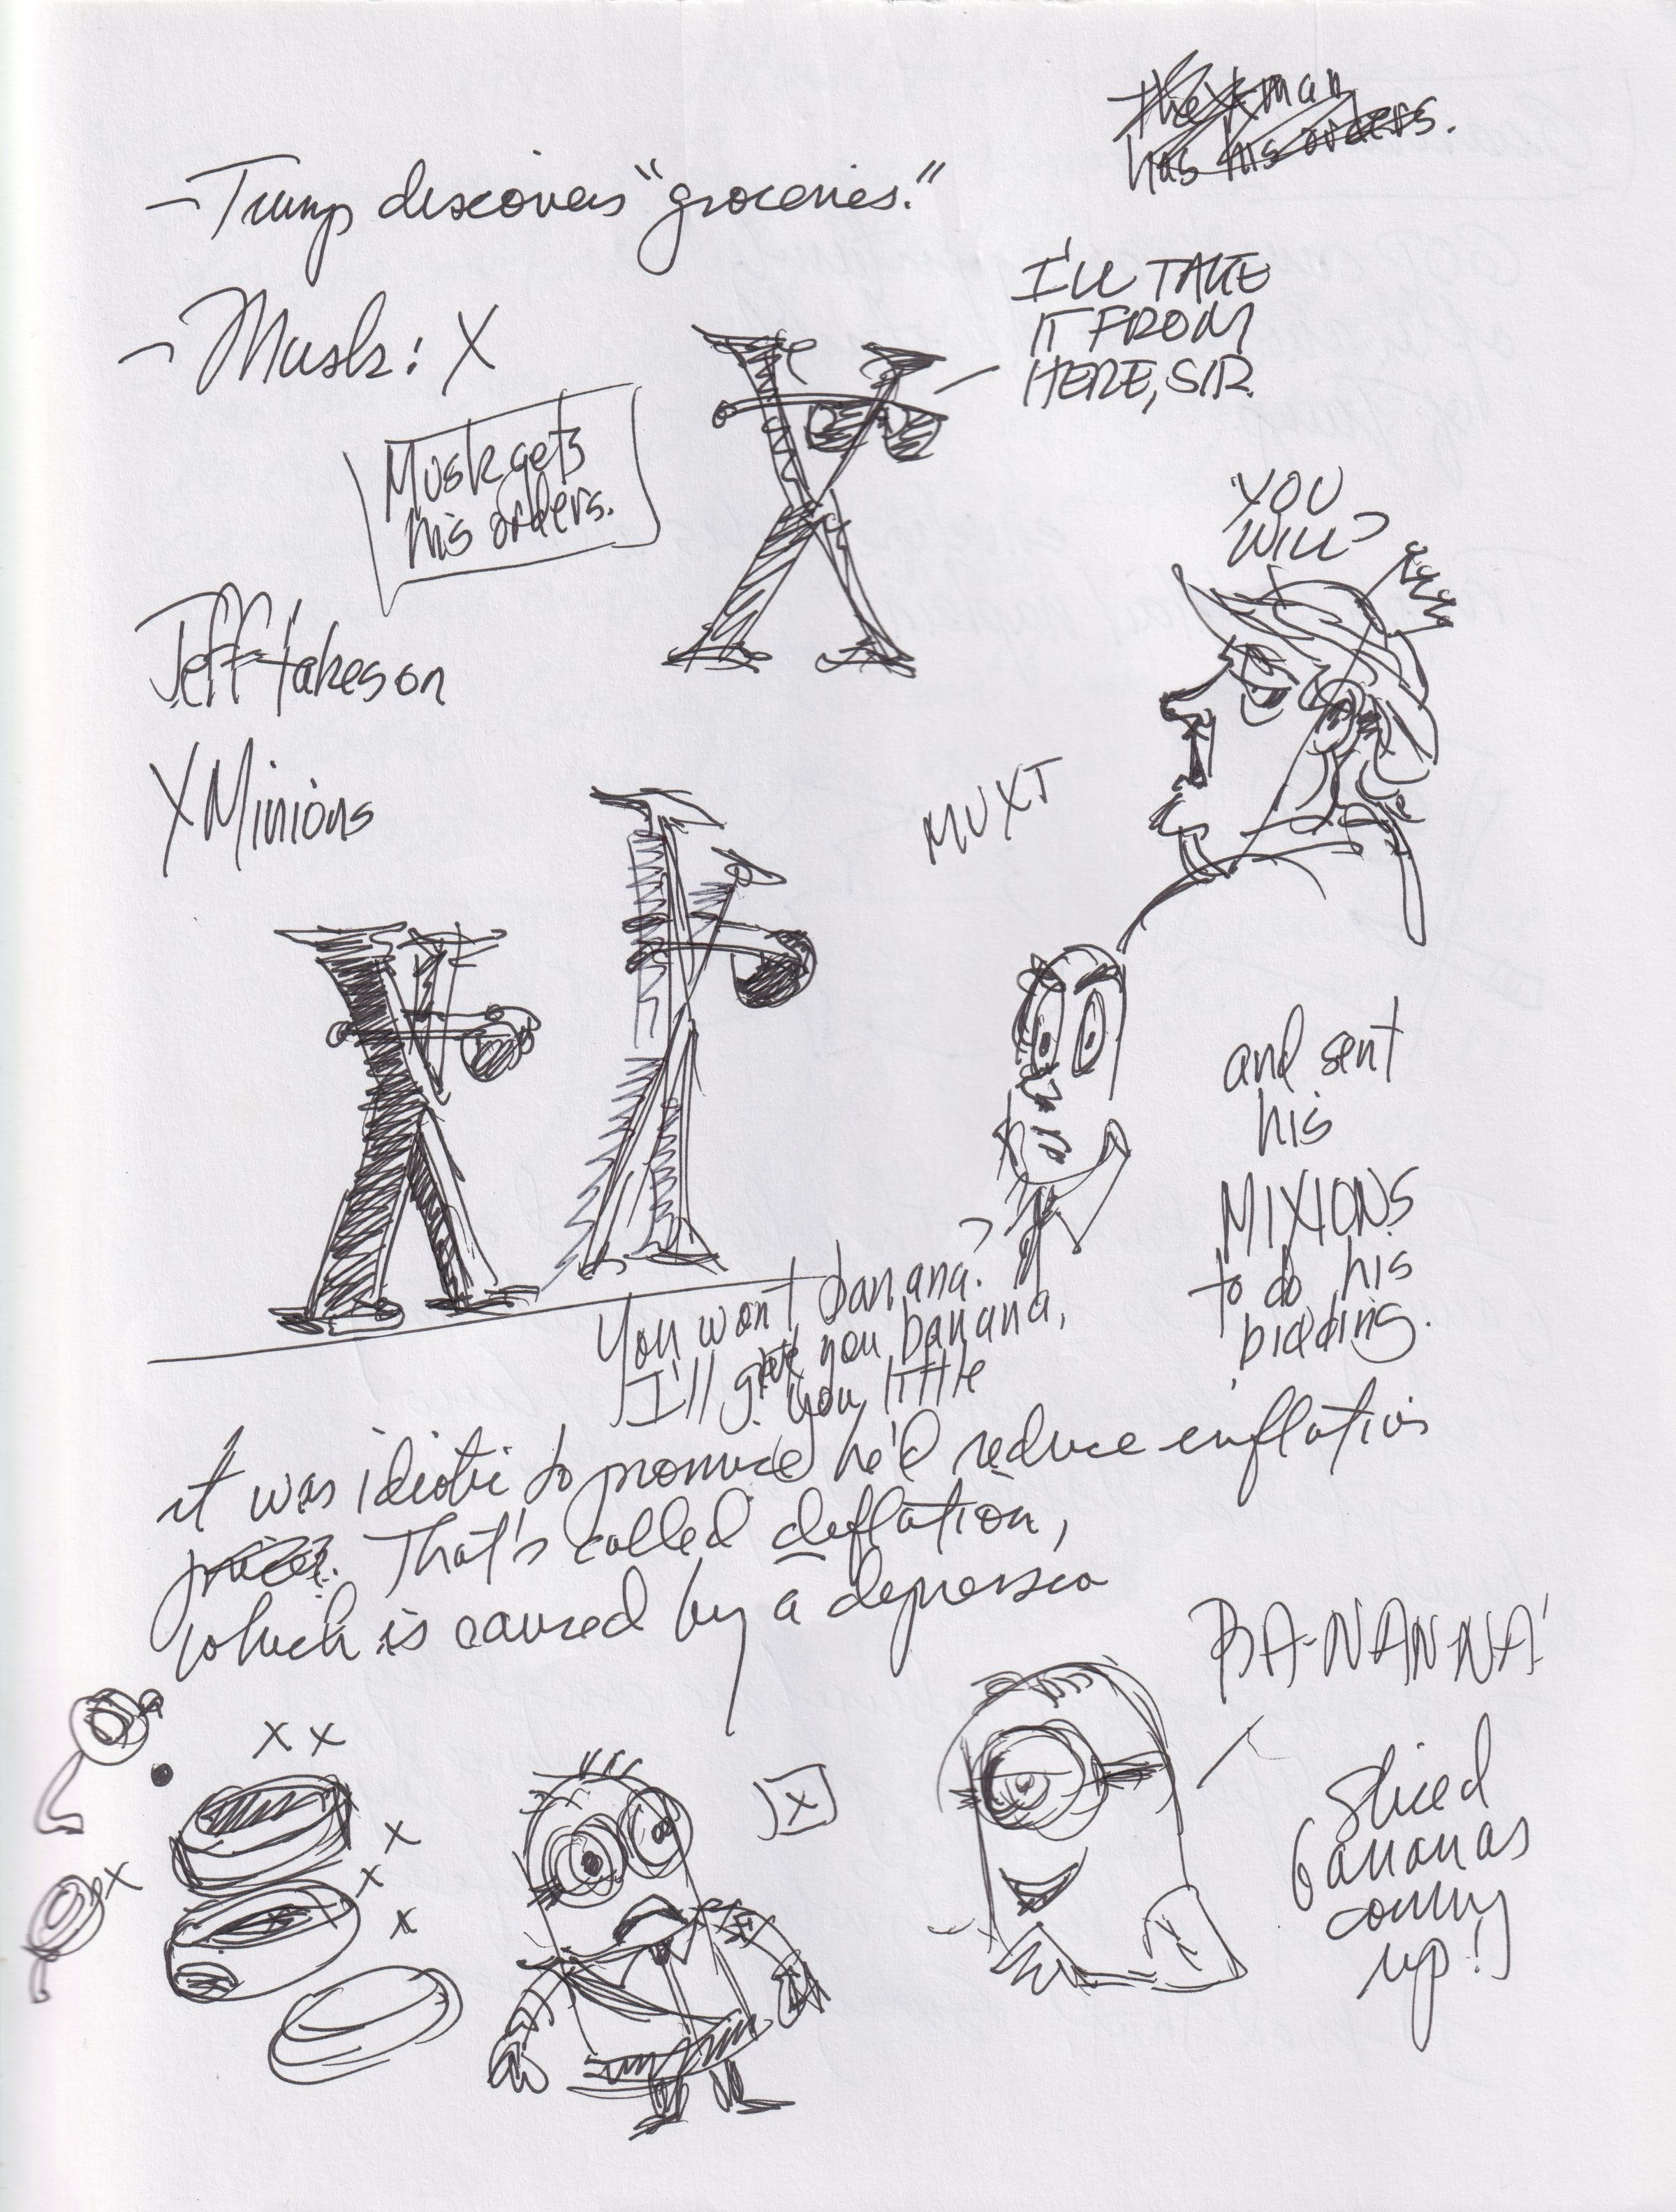 the X man
has his orders.
– Trump discovers "groceries."
– Musk: X
I'LL TAKE
IT FROM
HERE, SIR.
Musk gets
his orders.
YOU
WILL?
Jeff takes on
X Minions
MUXT
and sent
his
MIXIONS
to do his
bidding.
You want banana?
I'll give you banana,
you little
it was idiotic to promise he'd reduce inflation
prices. That's called deflation,
which is caused by a depression
BA-NAN-NA!
Sliced
bananas
coming
up!
X X
X
X
X
X
X